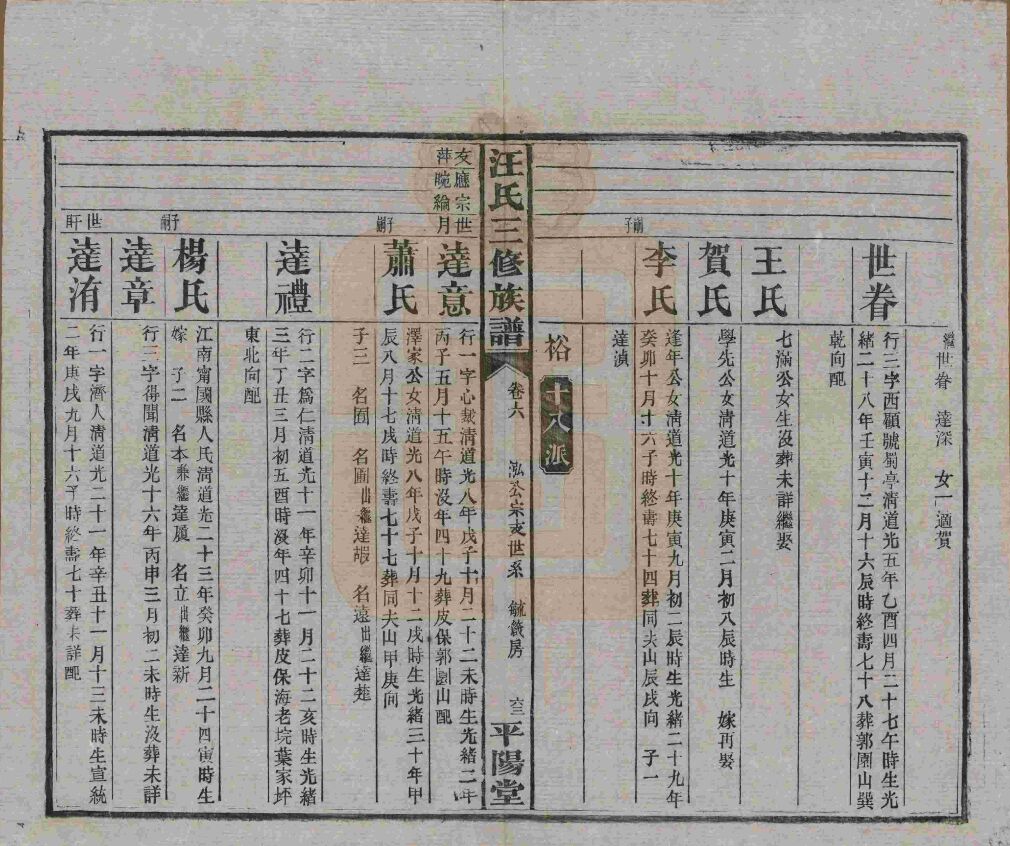 繼世眷 達深 女一適賀
世眷
行三字西顧號蜀亭清道光五年乙酉四月二十七午時生光
緒二十八年壬寅十二月十六辰時終壽七十八葬郭園山巽
乾向配
王氏
七滿公女生沒葬未詳繼娶
賀氏
學先公女清道光十年庚寅二月初八辰時生 嫁再娶
嗣子
李氏
逢年公女清道光十年庚寅九月初二辰時生光緒二十九年
癸卯十月十六子時終壽七十四葬同夫山辰戌向 子一
達湞
裕
十八派
汪氏三修族譜
卷六
泓公宗支世系
毓儀房
六三
平陽堂
友應宗世
萍畹綸月
達意
行一字心懿清道光八年戊子十月二十二未時生光緒二年
丙子五月十五午時沒年四十九葬皮保郭園山配
子嗣
蕭氏
澤家公女清道光八年戊子十月十二戌時生光緒三十年甲
辰八月十七戌時終壽七十七葬同夫山甲庚向
子三 名囿 名圃出繼達嘏 名遠出繼達楚
達禮
行二字為仁清道光十一年辛卯十一月二十二亥時生光緒
三年丁丑三月初五酉時沒年四十七葬皮保海老垸葉家坪
東北向配
子嗣
楊氏
江南甯國縣人民清道光二十三年癸卯九月二十四寅時生
嫁 子二 名本兼繼達風 名立出繼達新
達章
行三字得聞清道光十六年丙申三月初二未時生沒葬未詳
世盱
達洧
行一字濟人清道光二十一年辛丑十一月十三未時生宣統
二年庚戌九月十六子時終壽七十葬未詳配